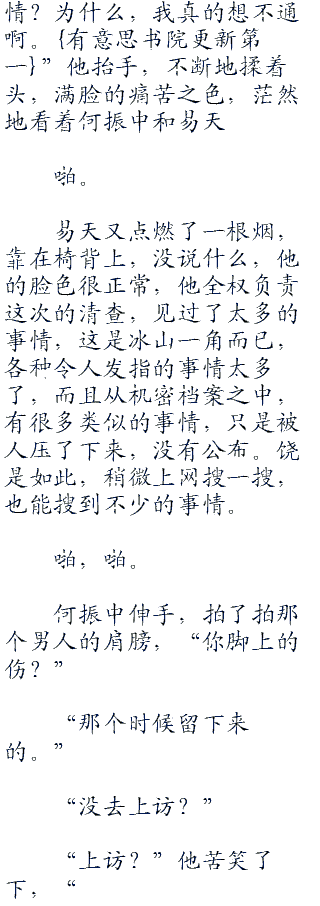 情？为什么，我真的想不通
啊。{有意思书院更新第
一}”他抬手，不断地揉着
头，满脸的痛苦之色，茫然
地看着何振中和易天
啪。
易天又点燃了一根烟，
靠在椅背上，没说什么，他
的脸色很正常，他全权负责
这次的清查，见过了太多的
事情，这是冰山一角而已，
各种令人发指的事情太多
了，而且从机密档案之中，
有很多类似的事情，只是被
人压了下来，没有公布。饶
是如此，稍微上网搜一搜，
也能搜到不少的事情。
啪，啪。
何振中伸手，拍了拍那
个男人的肩膀，“你脚上的
伤？”
“那个时候留下来
的。”
“没去上访？”
“上访？”他苦笑了
下，“